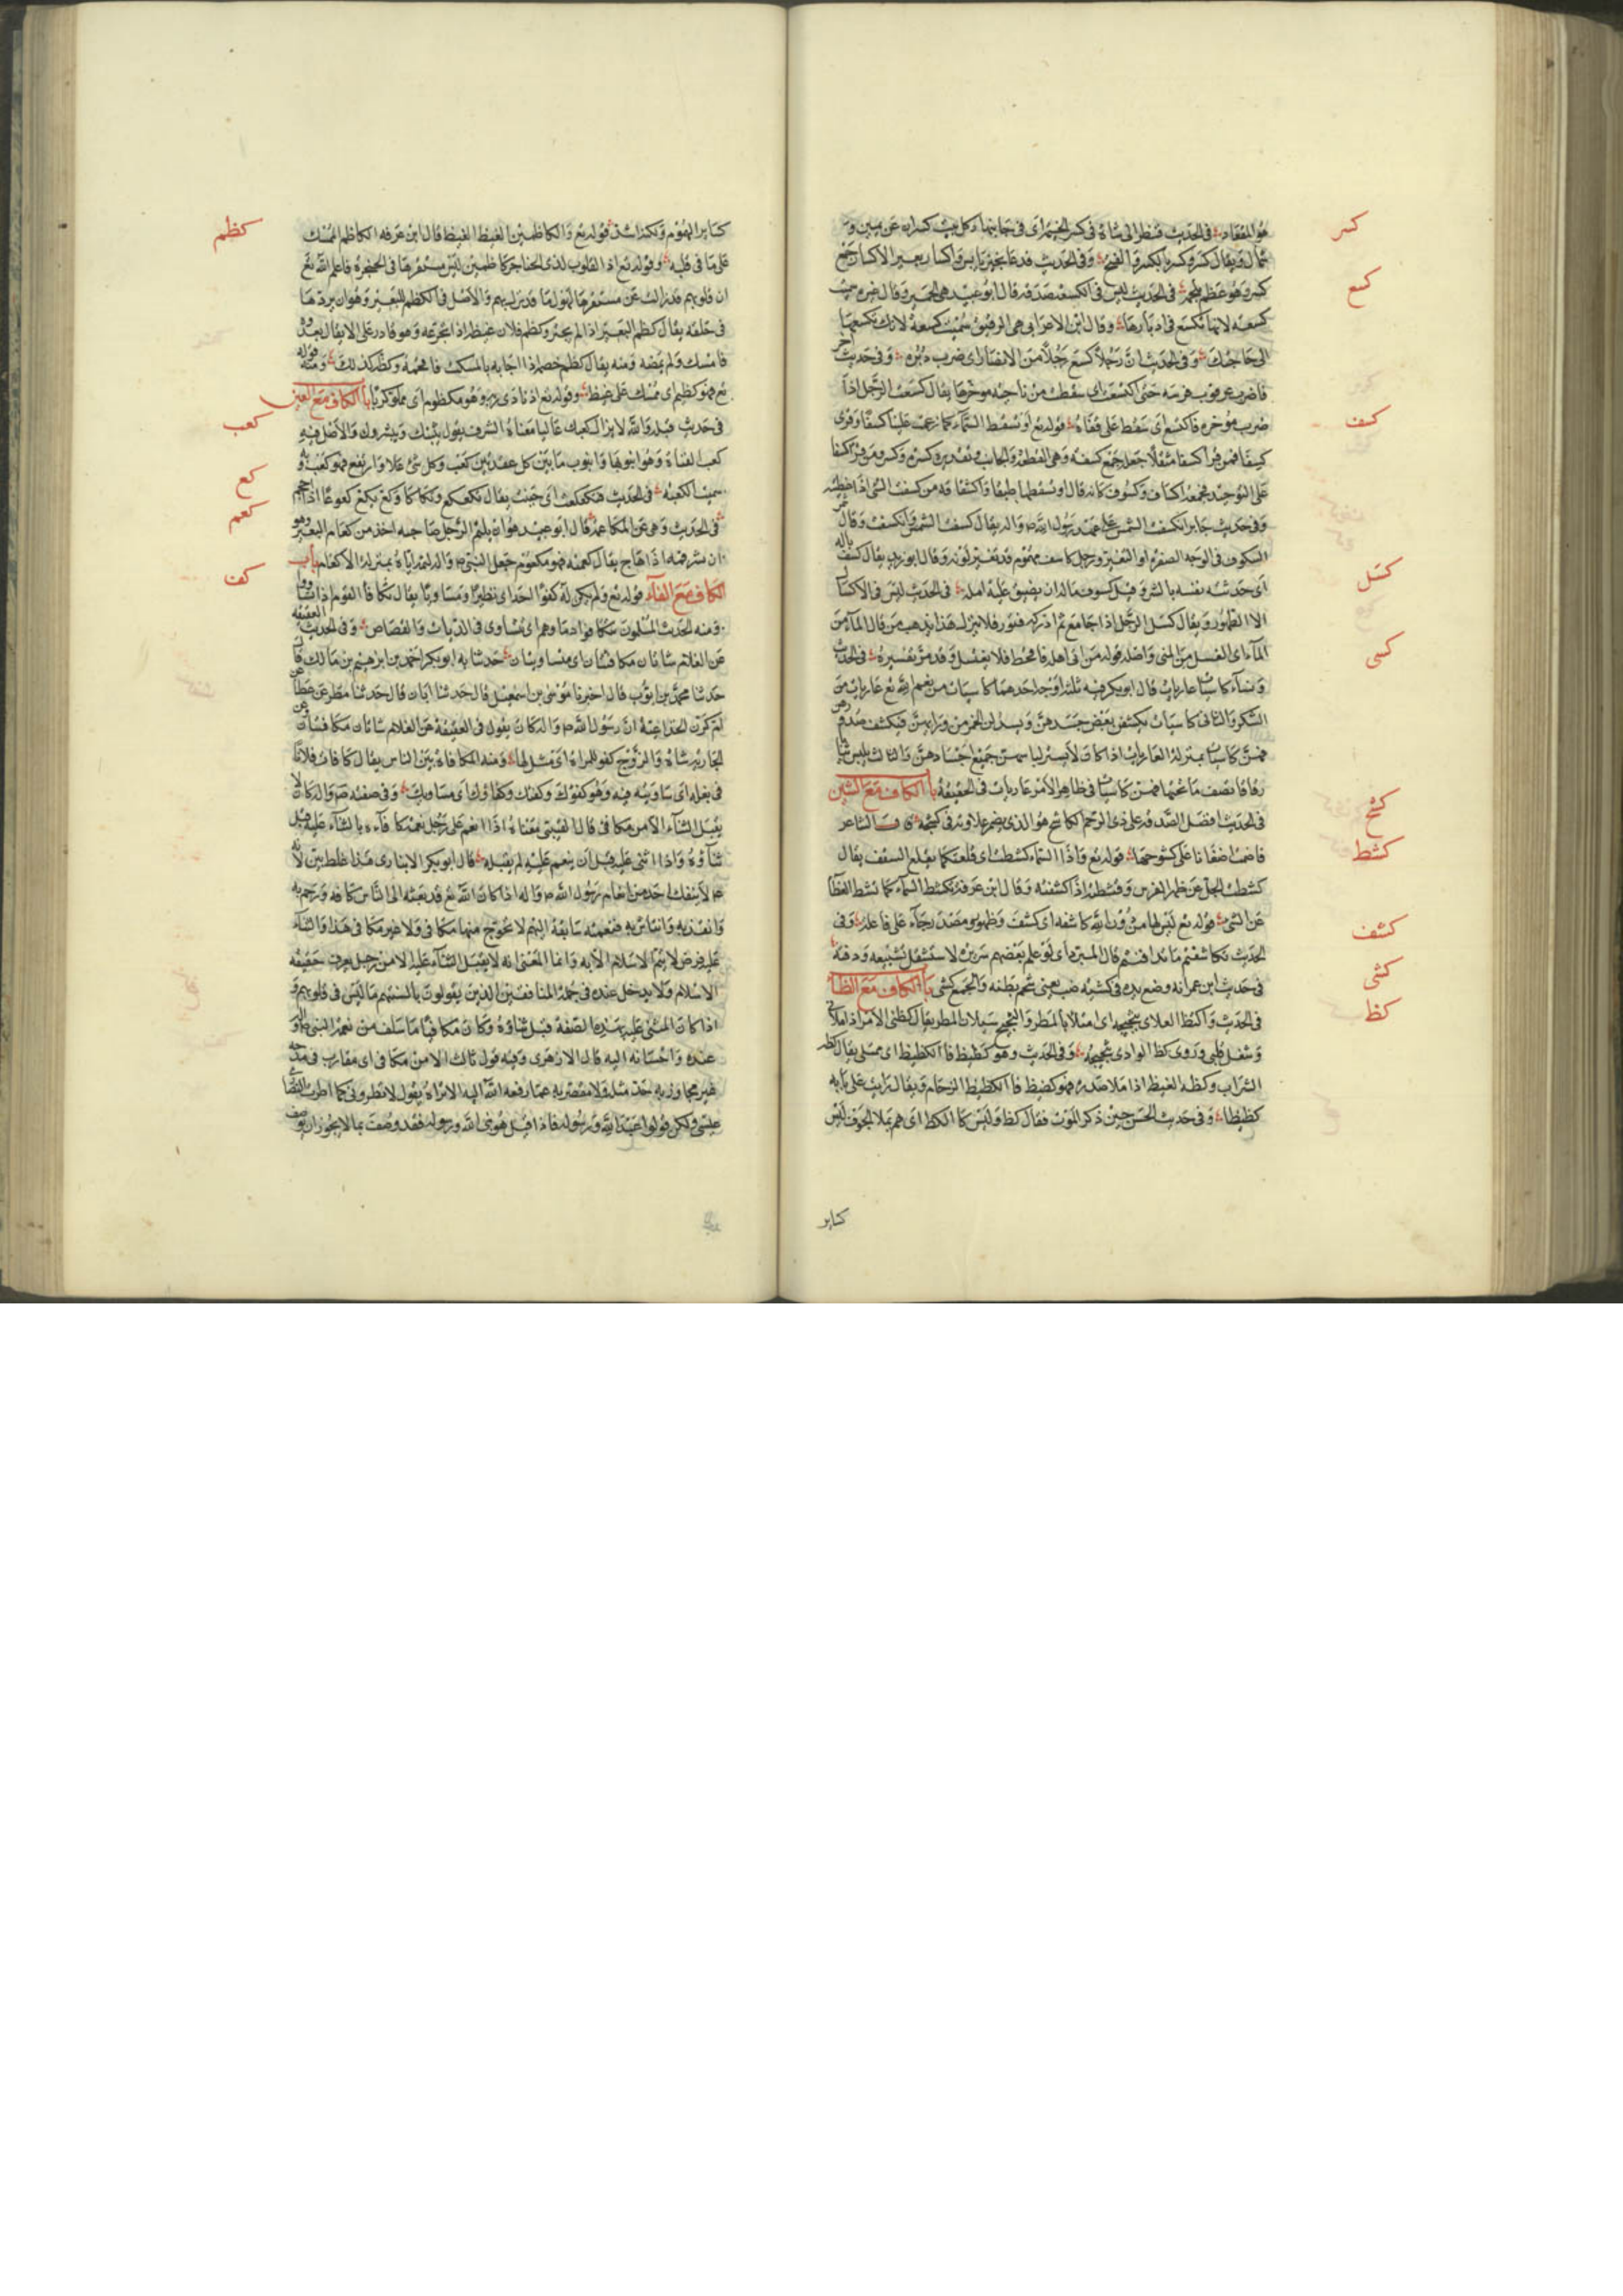 كسر
هو المقعاد في الحديث فنظر الى شاة في كسر الخيمة اى في جانبها ولكل بيت كسران عن يمين و
شمال ويقال كسر وكسر بالكسر والفتح وفي الحديث فدعا بخبز يابس واكسار بعير الاكسار جمع
كسع
كسر وهو عظم بلحمه في الحديث ليس في الكسعة صدقة قال ابو عبيد هي الحمير وقال غيره سميت
كسعة لانها تكسع في ادبارها وقال ابن الاعرابي هي الرقيق سميت كسعة لانك تكسعها
الى حاجتك وفي الحديث ان رجلا كسع رجلا من الانصار اى ضرب دبره وفي حديث اخر
فاضرب عرقوب فرسه حتى اكتسعت اى سقطت من ناحية مؤخرها يقال كسعت الرجل اذا
كسف
ضرب مؤخره فاكتسع اى سقط على قفاه قوله تع او تسقط السماء كما زعمت علينا كسفا وقرئ
كسفا فمن قرا كسفا مثقلا جعله جمع كسفة وهي القطعة والجانب وتقديره كسرة وكسر ومن قرا كسفا
على التوحيد فجمعه اكساف وكسوف كانه قال او تسقطها طبقا واشتقاقه من كسفت الشئ اذا غطيته
وفي حديث جابر انكسفت الشمس على عهد رسول الله ص واله يقال كسفت الشمس وانكسفت وقال
الكسوف في الوجه الصفرة او التغير ورجل كاسف مهموم قد تغير لونه وقال ابو زيد يقال كسف باله
كسل
اى حدثته نفسه بالشر وقيل كسوف باله ان يضيق عليه امله في الحديث ليس في الاكسال
الا الطهور ويقال كسل الرجل اذا جامع ثم ادركه فتور فلا ينزل هذا يذهب من قال الماء من
كسى
الماء اى الغسل من المنى واصله قوله من اتى اهله فاقحط فلا يغتسل وقد مر تفسيره في الحديث
ونساء كاسيات عاريات قال ابو بكر فيه ثلثة اوجه احدهما كاسيات من نعيم الله تع عاريات من
الشكر والثاني كاسيات يكشفن بعض جسدهن ويسدلن الخمر من ورائهن فيكشف صدورهن
فهن كاسيات بمنزلة العاريات اذا كان لا يستر لباسهن جميع اجسادهن والثالث يلبس ثيابا
رقاقا تصف ما تحتها فهن كاسيات في ظاهر الامر عاريات في الحقيقة باب الكاف مع الشين
كشح
في الحديث افضل الصدقة على ذى الرحم الكاشح هو الذى يضمر عداوته في كشحه قال الشاعر
كشط
فاضمر اضغانا على كشوحها قوله تع واذا السماء كشطت اى قلعت كما يقلع السقف يقال
كشطت الجل عن ظهر الفرس وقشطته اذا كشفته وقال ابن عرفة تكشط السماء كما يكشط الغطاء
كشف
عن الشئ قوله تع ليس لها من دون الله كاشفة اى كشف وظهور ومصدر جاء على فاعلة وفي
الحديث لو تكاشفتم ما تدافنتم قال المبرد اى لو علم بعضهم سريرة لاستثقل تشييعه ودفنه
كشى
في حديث ابن عمر انه وضع يده في كشية ضب يعنى شحم بطنه والجمع كشى باب الكاف مع الظاء
كظا
في الحديث واكتظ الوادى بثجيجه اى امتلأ بالمطر والثجيج سيلان المطر يقال كظنى الامر اذا ملأنى
وشغل قلبي وروى كظ الوادى بثجيجه وفي الحديث وهو كظيظ فالكظيظ اى ممتلى يقال كظه
الشراب وكظه الغيظ اذا ملأ صدره فهو كظيظ فالكظيظ الزحام ويقال رايت على بابه
كظيظا وفي حديث الحسن حين ذكر الموت فقال كظ وليس كالكظ اى هم يملأ الجوف ليس
كسائر
كظم
كسائر الهموم ولكنه اشد قوله تع والكاظمين الغيظ الغيظ قال ابن عرفة الكاظم الممسك
على ما في قلبه وقوله تع اذ القلوب لدى الحناجر كاظمين ليس مستقرها في الحنجرة فاعلم الله تع
ان قلوبهم قد زالت عن مستقرها لهول ما قد نزل بهم والاصل في الكظم للبعير وهو ان يردها
في حلقه يقال كظم البعير اذا لم يجتر وكظم فلان غيظه اذا تجرعه وهو قادر على الايقاع بعدوه
فامسك ولم يمضه ومنه يقال كظم خصمه اذا اجابه بالمسكت فافحمه وكظه كذلك ومنه قوله
تع فهو كظيم اى ممسك على غيظ وقوله تع اذ نادى ربه وهو مكظوم اى مملو كربا باب الكاف مع العين
كعب
في حديث قيلة والله لا يزال كعبك عاليا معناه الشرف يقول يثبتك ويشرفك والاصل فيه
كعب القناة وهو انبوبها وانبوب ما بين كل عقدتين كعب وكل شئ علا وارتفع فهو كعب وبه
كع
سميت الكعبة في الحديث فتكعكعت اى جبنت يقال تكعكع وتكأكأ وكع يكع كعوعا اذا احجم
كعم
في الحديث نهى عن المكاعمة قال ابو عبيد هو ان يلثم الرجل صاحبه اخذ من كعام البعير وهو
ان يشد فمه اذا هاج يقال كعمته فهو مكعوم جعل النبي ص واله لثمه اياه بمنزلة الكعام باب
كف
الكاف مع الفاء قوله تع ولم يكن له كفوا احد اى نظيرا ومساويا يقال تكافأ القوم اذا تساووا
ومنه الحديث المسلمون تتكافؤ دماؤهم اى تتساوى في الديات والقصاص وفي الحديث العقيقة
عن الغلام شاتان مكافئتان اى متساويتان حدثنا به ابو بكر احمد بن ابرهيم بن مالك قال
حدثنا محمد بن ايوب قال اخبرنا موسى بن اسمعيل قال حدثنا ابان قال حدثنا مطر عن عطا عن
ام كرز الخزاعية ان رسول الله ص واله كان يقول في العقيقة عن الغلام شاتان مكافئتان وعن
الجارية شاة والزوج كفو للمراة اى مثل لها ومنه المكافاة بين الناس يقال كافات فلانا
في فعله اى ساويته فيه وهو كفوك وكفيئك وكفاؤك اى مساويك وفي صفته ص واله كان لا
يقبل الثناء الا من مكافئ قال القتيبي معناه اذا انعم على رجل نعمة كافاه بالثناء عليه قبل
ثناؤه واذا اثنى عليه قبل ان ينعم عليه لم يقبله قال ابو بكر الانبارى هذا غلط بين لانه
لا ينفك احد من انعام رسول الله ص واله اذا كان الله تع قد بعثه الى الناس كافة ورحم به
وانقذ به وانتاش به فنعمته سابقة اليهم لا يخرج منها مكافئ ولا غير مكافئ هذا والثناء
عليه فرض لا يتم الاسلام الا به وانما المعنى انه لا يقبل الثناء عليه الا من رجل يعرف حقيقة
الاسلام ولا يدخل عنده في جملة المنافقين الذين يقولون بالسنتهم ما ليس في قلوبهم و
اذا كان المثنى عليه بهذه الصفة قبل ثناؤه وكان مكافئا ما سلف من نعمة النبي ص واله
عنده واحسانه اليه قال الازهرى وفيه قول ثالث الا من مكافئ اى مقارب في مدحه
غير مجاوز به حد مثله ولا مقصر به عما رفعه الله اليه الا تراه يقول لا تطرونى كما اطرت النصارى
عيسى ولكن قولوا عبد الله ورسوله فاذا قيل هو نبي الله ورسوله فقد وصف بما لا يجوز ان يوصف